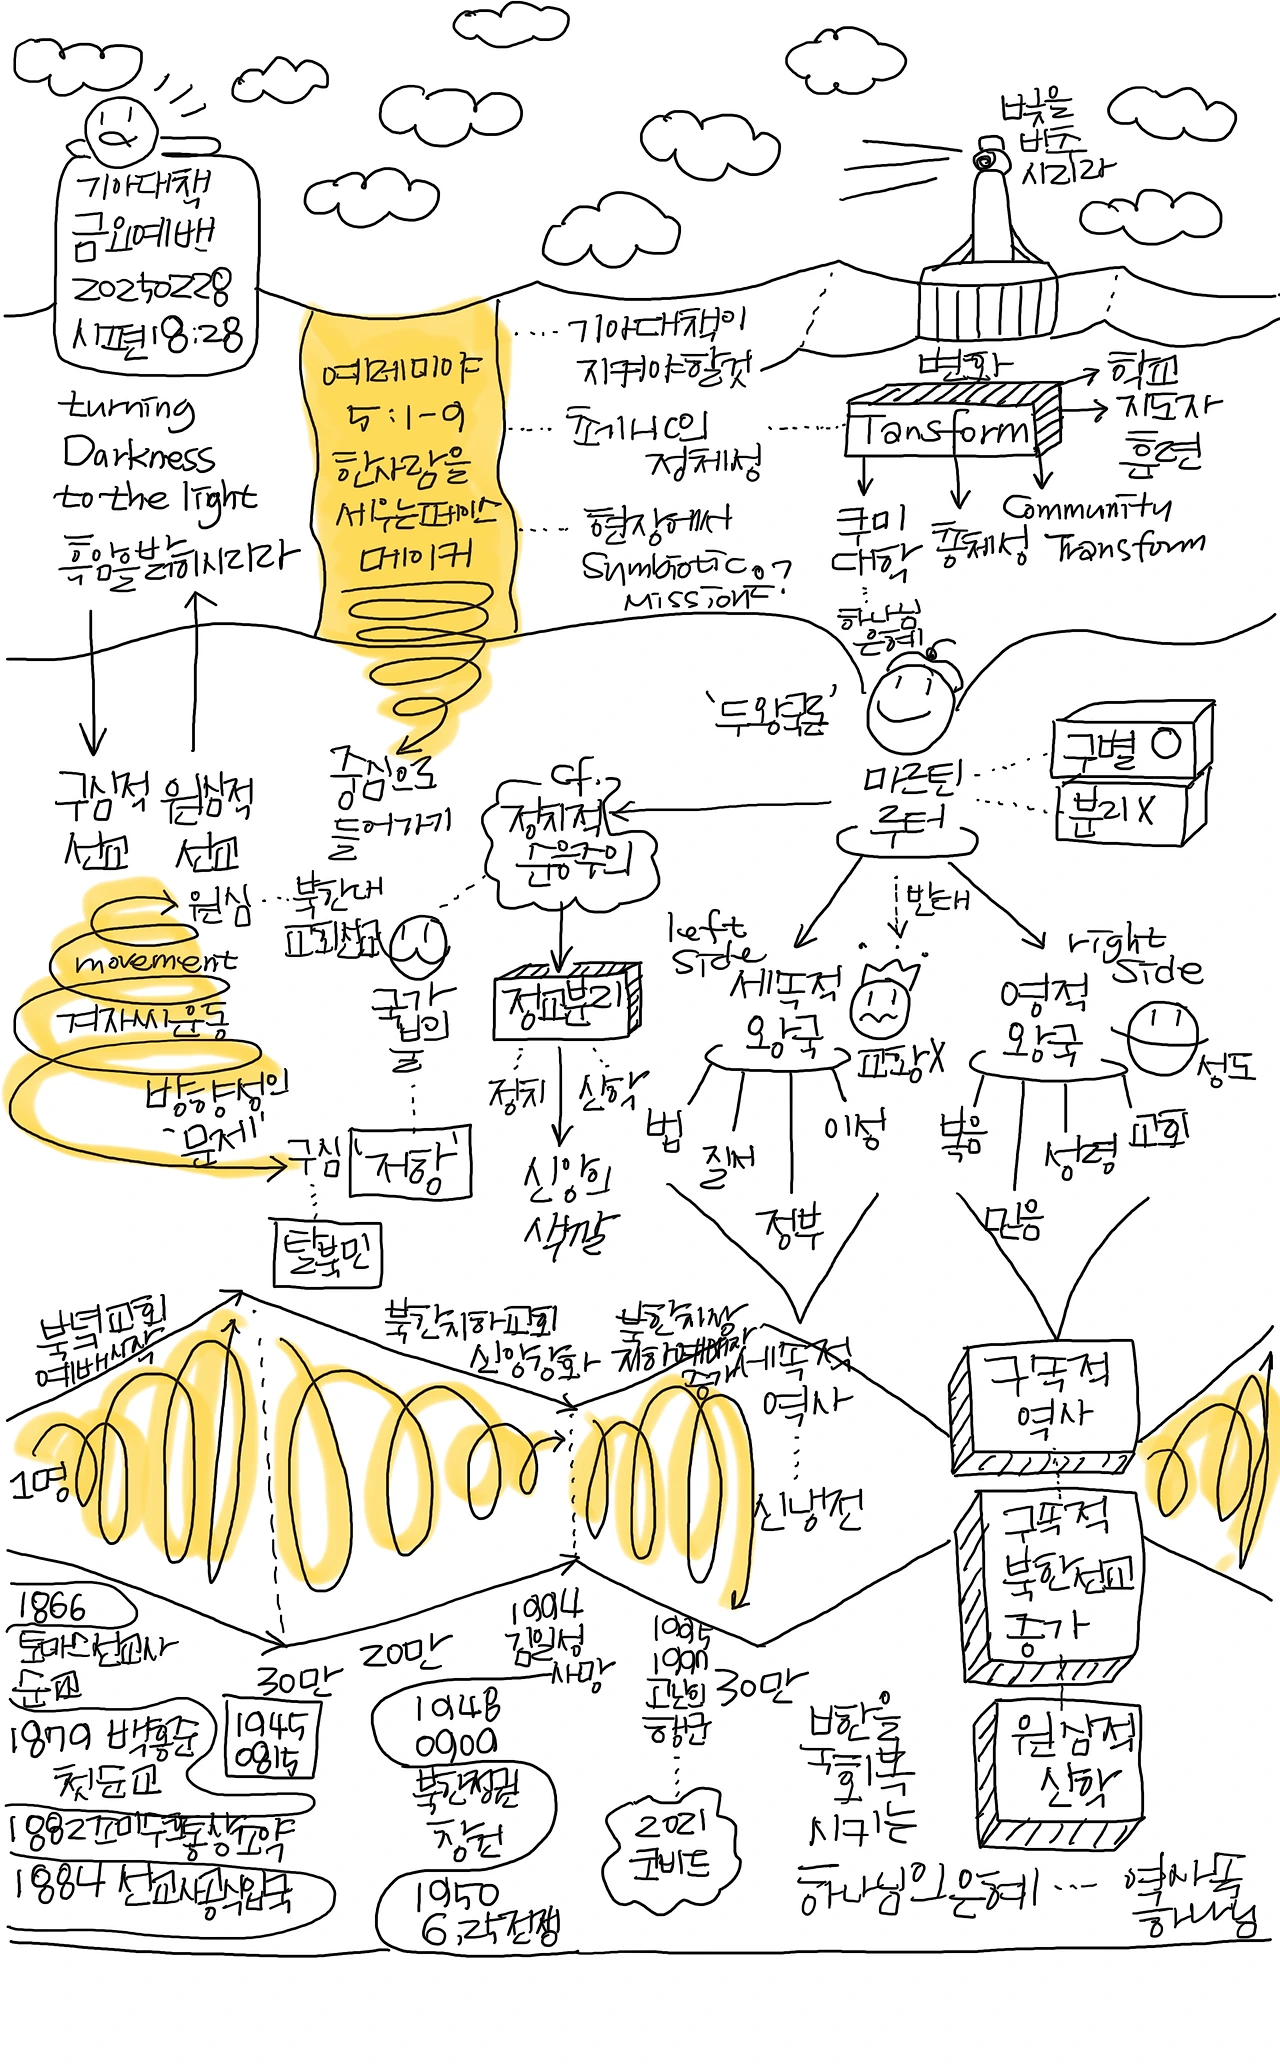 기아대책
금요예배
20250228
시편18:28
turning
Darkness
to the light
흑암을 밝히시리라
빛을
비추
시리라
예레미야
5:1-9
한사람을
세우는 페이스
메이커
기아대책이
지켜야할것
초기NGO의
정체성
현장에서
Symbiotic
Mission?
변화
Tansform
학교
지도자
훈련
쿠미
대학
총체성
Community
Transform
하나님
은혜
'두왕국론'
마르틴
루터
구별 O
분리 X
구심적
선교
원심적
선교
중심으로
들어가기
cf.
정치적
순응주의
원심
북한내
교회선교
movement
겨자씨운동
방향성의
'문제'
구심
탈북민
국가
법의
'저항'
정교분리
정치
신학
신앙의
색깔
반대
left
side
세속적
왕국
교황X
법
질서
정부
이성
right
side
영적
왕국
성도
복음
믿음
성령
교회
북녘교회
예배시작
1명
북한지하교회
신앙강화
북한지상
증가
세속적
역사
신냉전
구속적
역사
구속적
북한선교
증가
원심적
신학
1866
토마스선교사
순교
1879 백홍준
첫순교
1882조미수호통상조약
1884 선교사공식입국
30만
1945
0815
20만
1994
김일성
사망
1948
0909
북한정권
창건
1950
6.25전쟁
1995
고난의
행군
30만
2021
코비드
북한을
회복
시키는
하나님의 은혜 ...
역사속
하나님